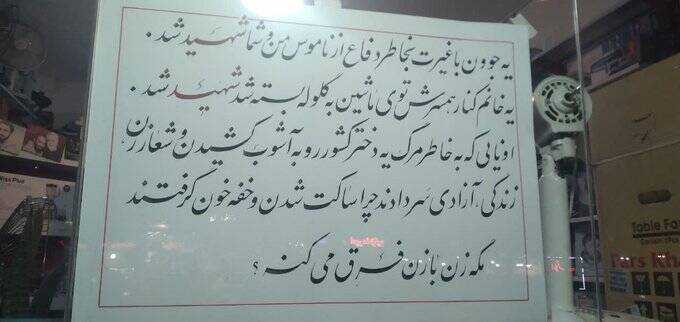 یه جوون با غیرت بخاطر دفاع از ناموس من و شما شهید شد.
یه خانم کنار همسرش توی ماشین به گلوله بسته شد شهید شد.
اونایی که به خاطر مرگ یه دختر کشور رو به آشوب کشیدن و شعار زن
زندگی، آزادی سر دادند چرا ساکت شدن و خفه خون گرفتند
مگه زن با زن فرق می کنه؟
Table Fan